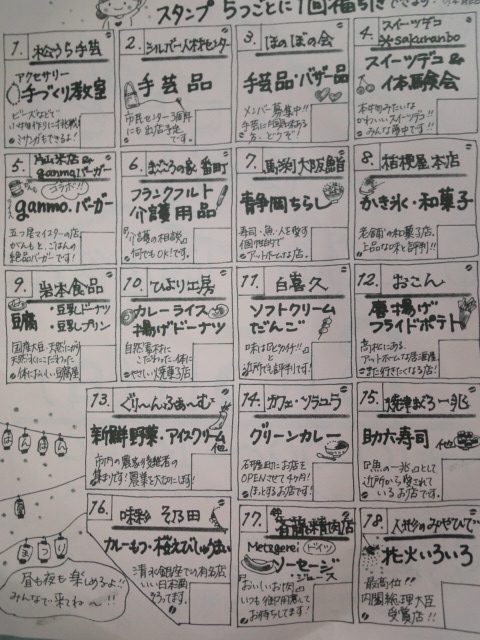 スタンプ 5つごとに1回福引き
1. 松うら手芸
アクセサリー
手づくり教室
2. シルバー人材センター
手芸品
市民センター3階
にも出店予定
です。
3. ほのぼの会
手芸品・バザー品
メンバー募集中!!
4. スイーツデコ
sakuranbo
スイーツデコ
&
体験会
本物みたいな
かわいいスイーツデコ!!
みんな夢中です!!
5.
コラボ!!
ganmo.バーガー
絶品バーガーです!
6. まごころの家 番町
フランクフルト
介護用品
介護の相談
何でもOK!です。
7. 馬渕大阪鮨
静岡ちらし
寿司・魚・人を愛す
個性的で
アットホームな店。
8. 桔梗屋本店
かき氷・和菓子
老舗の和菓子店。
上品な味と評判!!
9. 岩本食品
豆腐
・豆乳ドーナツ
・豆乳プリン
国産大豆・天然にがり
天然水にこだわった
体においしい豆腐屋
10. ひより工房
カレーライス
揚げドーナツ
自然素材に
こだわった、体に
やさしい焼菓子店
11. 白喜久
ソフトクリーム
だんご
近所でも評判です!
12. おこん
唐揚げ
フライドポテト
アットホームな居酒屋
また行きたくなる店!
13. ぐり〜んふぁ〜む
新鮮野菜・アイスクリーム
他
市内の農家や愛好者の
集まりです!農業を大切にしよう!
14. カフェ・ソラユラ
グリーンカレー
OPENさせて4ヶ月!
ほっとするお店です!
15. 焼津まぐろ一兆
助六寿司
他
『魚の一兆』として
近所から愛されて
いるお店です。
16. 味彩 その田
カレーもつ・桜えびしゅうまい
清水銀座での有名店
いい日本酒
そろってます。
17.
精肉店
Metzgerei ドイツ
ソーセージ
ジュース
おいしいお肉
いつも個用意して
お待ちしてます!
18. 人形のみやひで
花火いろいろ
最高位!!
内閣総理大臣
受賞店!!
まつり
昼も夜も楽しめるよ!!
みんなで来てね〜!!